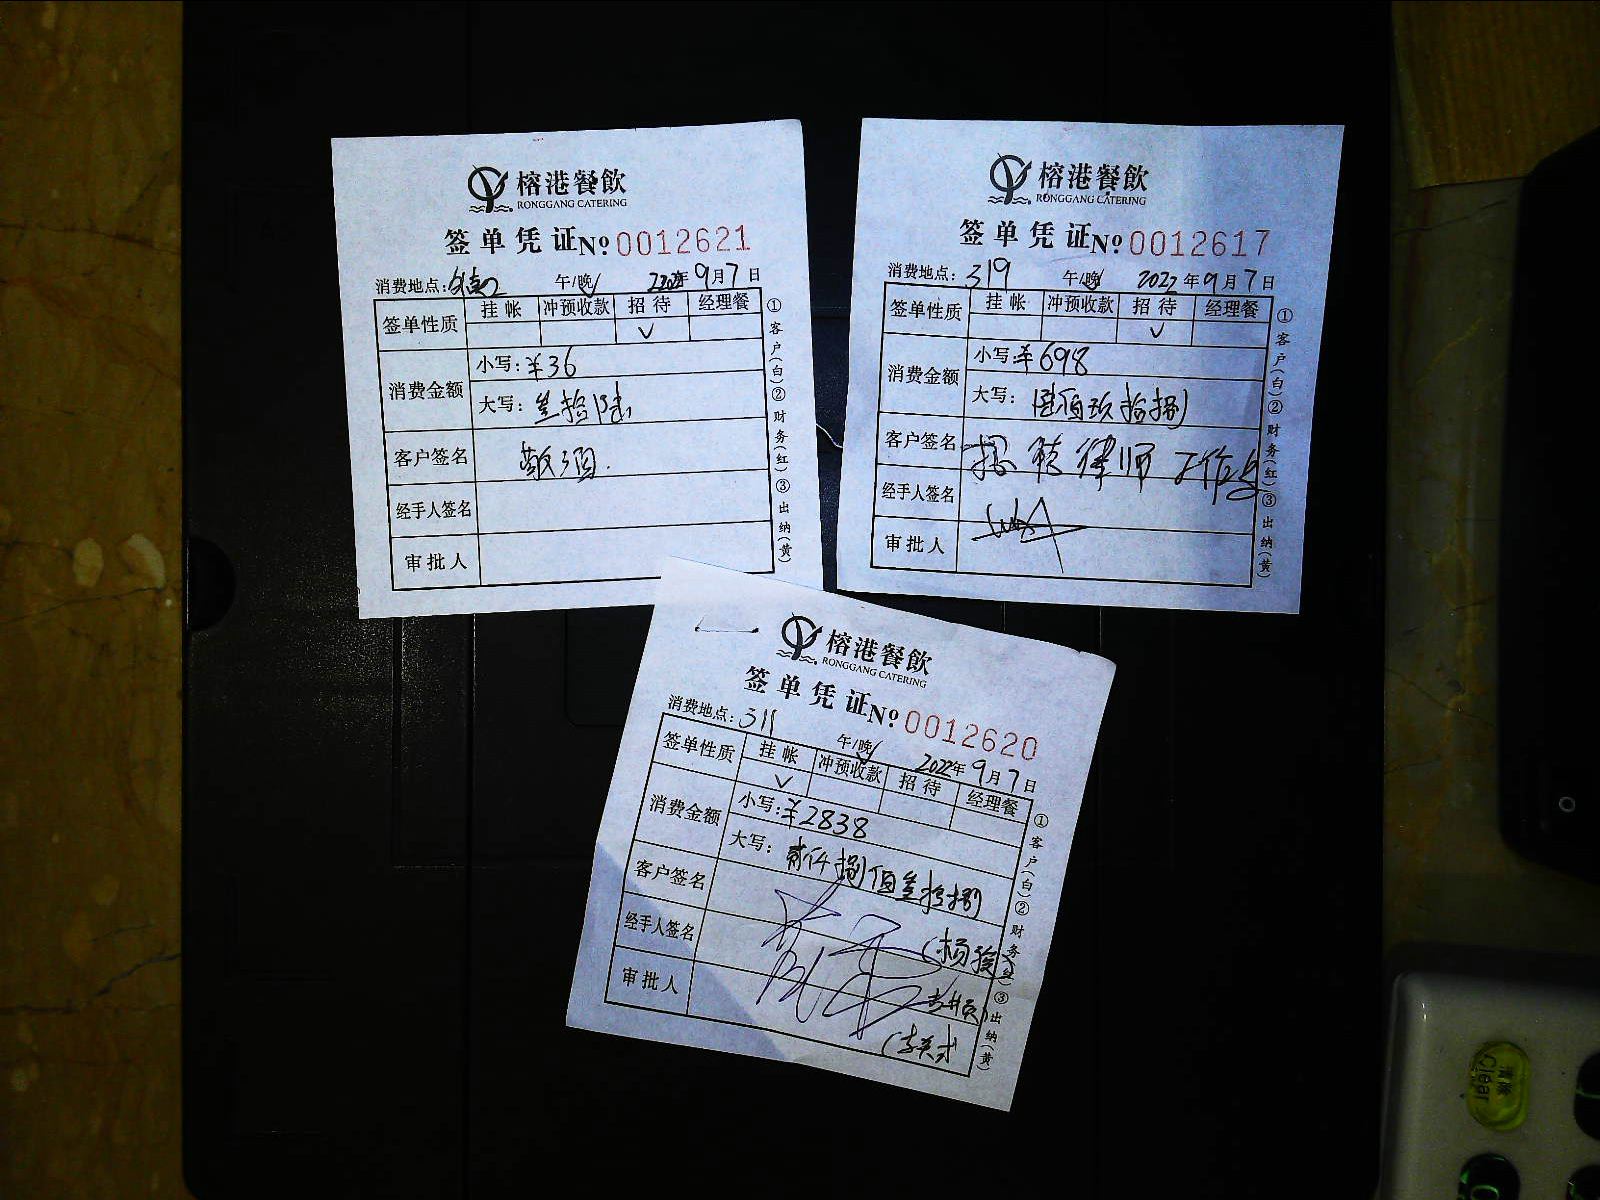 榕港餐飲
RONGGANG CATERING
签单凭证No 0012621
消费地点: 午/晚 2022年9月7日
签单性质 挂帐 冲预收款 招待 经理餐
✓
消费金额 小写:¥36
大写:叁拾陆
客户签名 敬酒.
经手人签名
审批人
①客户(白)②财务(红)③出纳(黄)
榕港餐飲
RONGGANG CATERING
签单凭证No 0012617
消费地点:319 午/晚 2022年9月7日
签单性质 挂帐 冲预收款 招待 经理餐
✓
消费金额 小写:¥698
大写:陆佰玖拾捌
客户签名 律师工作
经手人签名
审批人
①客户(白)②财务(红)③出纳(黄)
榕港餐飲
RONGGANG CATERING
签单凭证No 0012620
消费地点:311 午/晚 2022年9月7日
签单性质 挂帐 冲预收款 招待 经理餐
✓
消费金额 小写:¥2838
大写:贰仟捌佰叁拾捌
客户签名
经手人签名
审批人
①客户(白)②财务(红)③出纳(黄)
清除
Clear